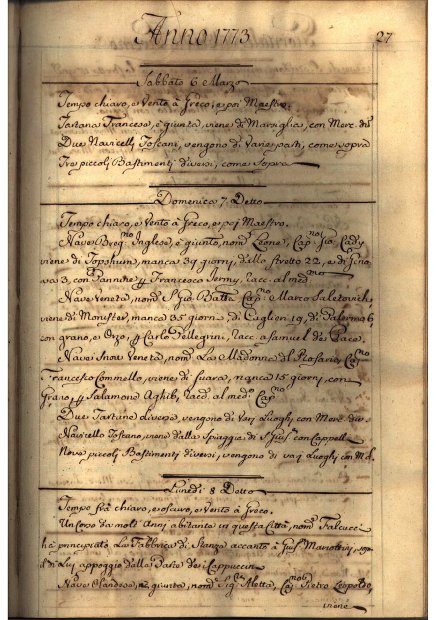 Anno 1773
27
Sabbato 6 Marzo
Tempo chiaro, e Vento à Greco, e poi Maestro.
Tartana Francese, è giunta, viene di Marsiglia, con Merc. div.
Due Navicelli Toscani, vengono di varie parti, come sopra
Tre piccoli Bastimenti diversi, come sopra
Domenica 7. Detto
Tempo chiaro, e Vento à Greco, e poi Maestro.
Nave Inglese, è giunto, nom. Leone, Cap.no Gio.
viene di Topshum, manca 39 giorni, dallo stretto 22, e di Geno
va 3, con Francesco Jermy, Racc. al med.mo
Nave Veneta, nom. S. Gio Batta Cap.no Marco
viene di manca 35 giorni, di 19, di Palermo 6,
con grano, e Orzo, Carlo Pellegrini, Racc. a Samuel de Pace.
Nave Snow Veneta, nom. La Madonna d. Rosario, Cap.no
Francesco Commello, viene di manca 15 giorni, con
Grano, Salamone Aghib, Racc. al med. Cap.no
Due Tartane diverse, vengono di varj Luoghi con Merc. div.
Navicello Toscano, viene dalla Spiaggia di con Cappelli
Nove piccoli Bastimenti diversi, vengono di varj Luoghi con M. d.
Lunedì 8 Detto
Tempo frà chiaro, e oscuro, e Vento à Greco.
Un da molti Anni abitante in questa Città, nom. Falcucci
hà principiato La Fabbrica di Stanze accanto à
di Lui appoggio dalla parte dei Cappuccini
Nave Olandese, è giunta, nom. Sig.ra Aletta, Cap.no Pietro Leopoldo,
viene